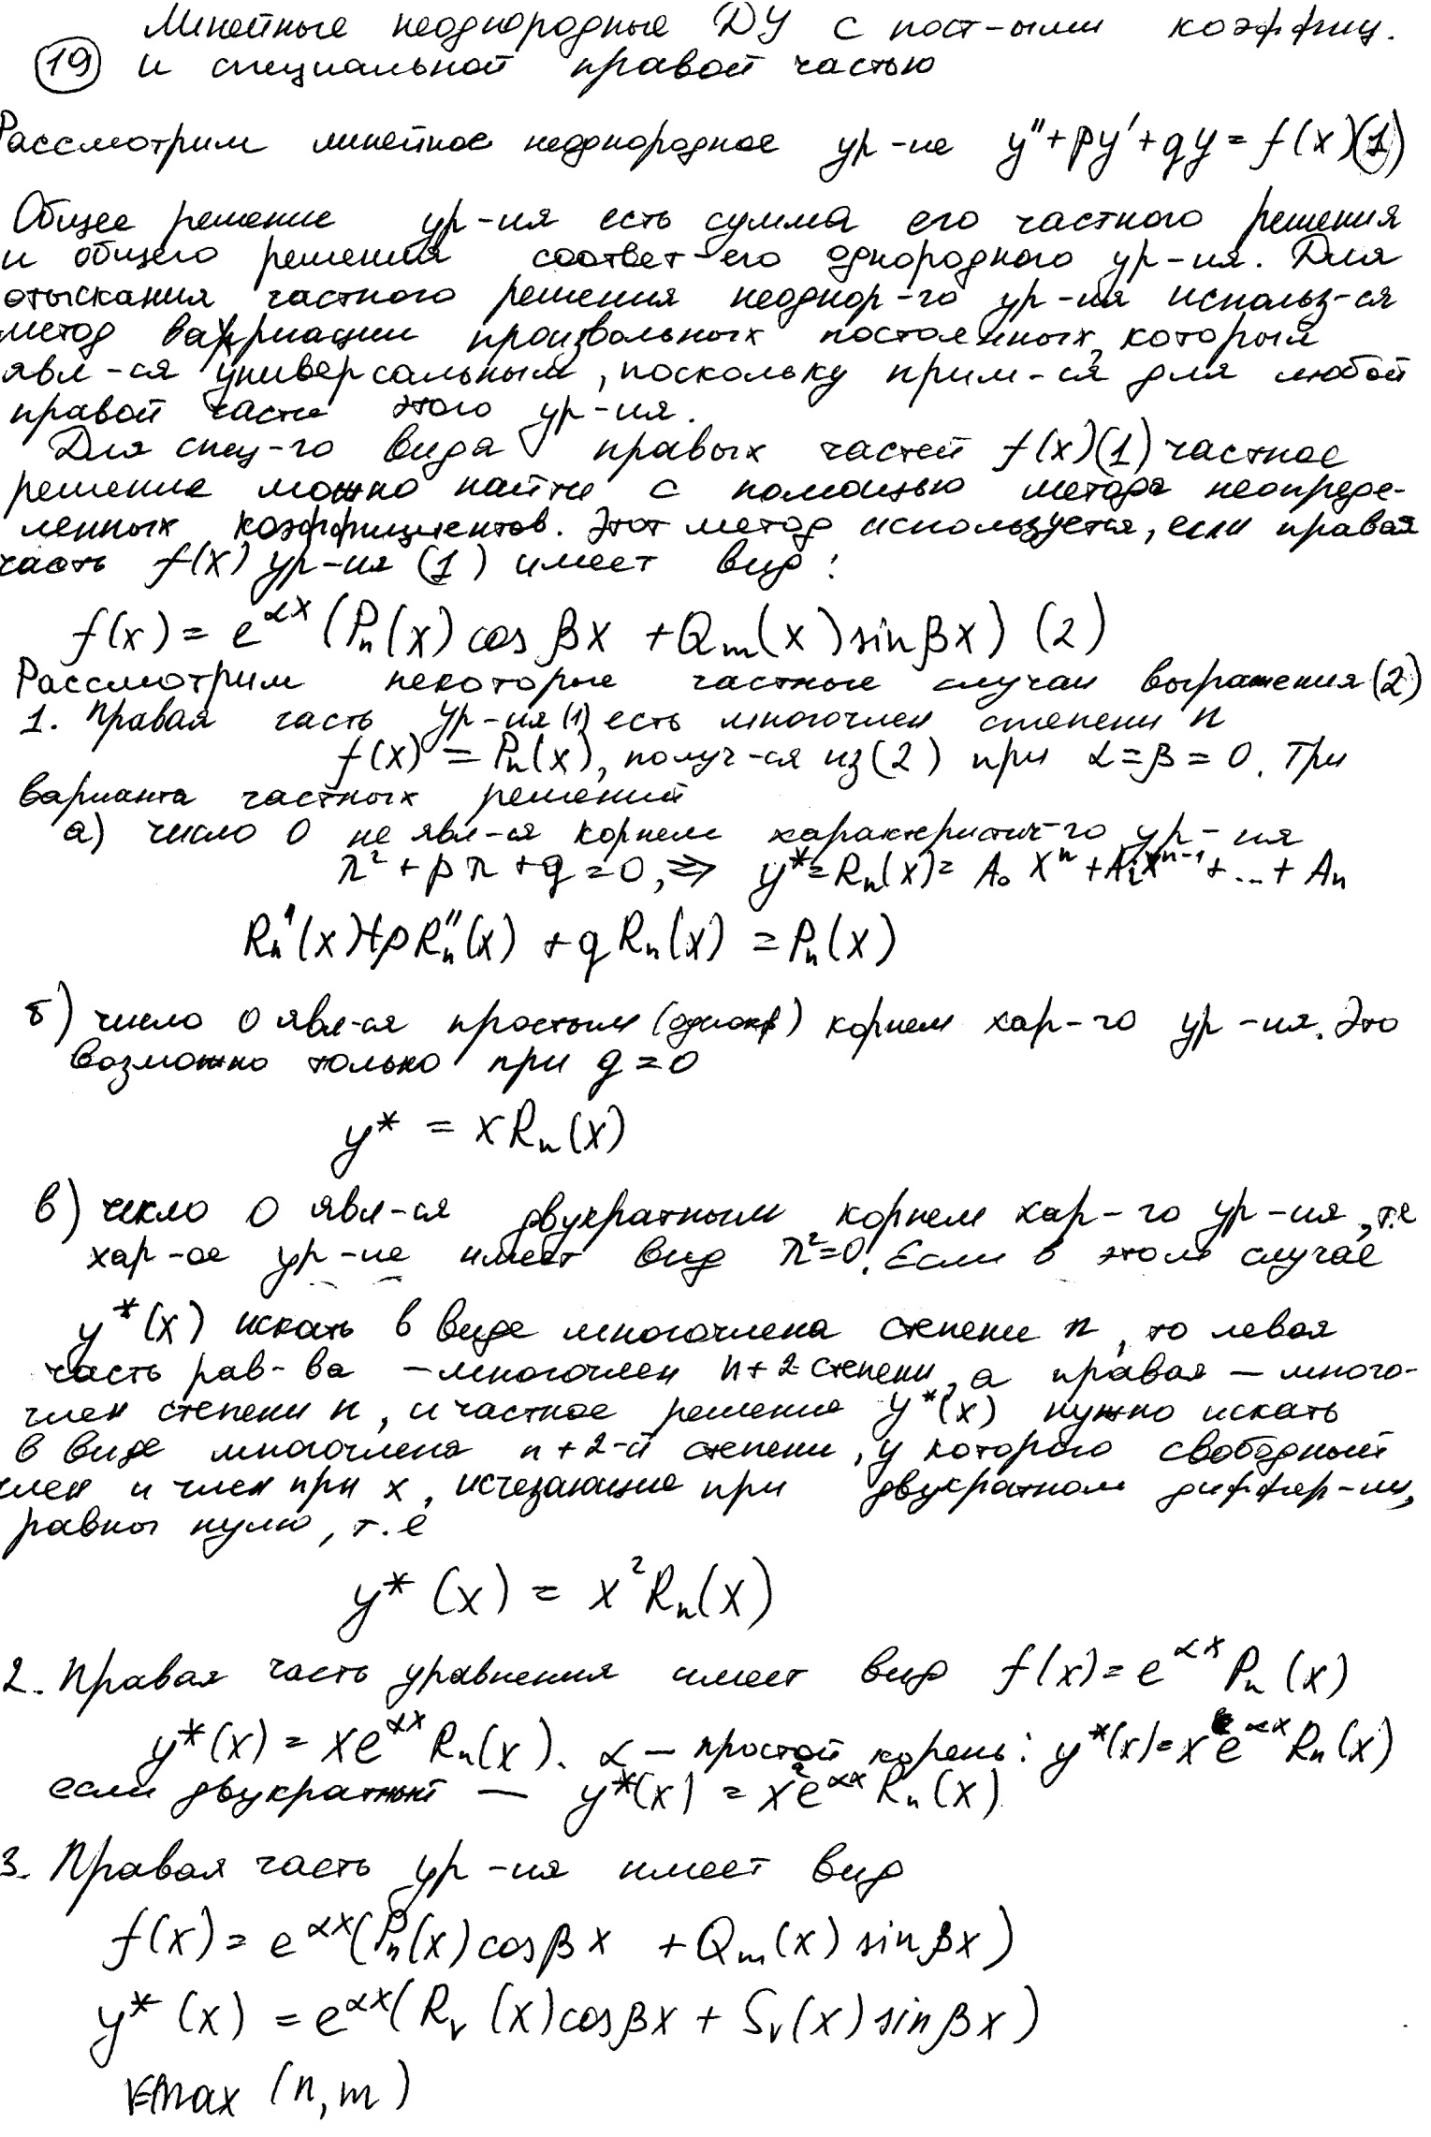 Линейные неоднородные ДУ с пост-ыми коэффиц.
(19) и специальной правой частью
Рассмотрим линейное неоднородное ур-ие y'' + py' + qy = f(x) (1)
Общее решение ур-ия есть сумма его частного решения
и общего решения соответ-его однородного ур-ия. Для
отыскания частного решения неоднор-го ур-ия использ-ся
метод вариации произвольных постоянных, который
явл-ся универсальным, поскольку прим-ся для любой
правой части этого ур-ия.
Для спец-го вида правых частей f(x) (1) частное
решение можно найти с помощью метода неопреде-
ленных коэффициентов. Этот метод используется, если правая
часть f(x) ур-ия (1) имеет вид:
f(x) = e^{αx} (P_n(x) cos βx + Q_m(x) sin βx) (2)
Рассмотрим некоторые частные случаи выражения (2)
1. Правая часть ур-ия (1) есть многочлен степени n
f(x) = P_n(x), получ-ся из (2) при α = β = 0. Три
варианта частных решений
а) число 0 не явл-ся корнем характеристич-го ур-ия
r² + pr + q = 0, ⇒ y* = R_n(x) = A₀ x^n + A₁x^{n-1} + ... + A_n
R_n'(x) + pR_n''(x) + qR_n(x) = P_n(x)
б) число 0 явл-ся простым (однокр) корнем хар-го ур-ия. Это
возможно только при q = 0
y* = xR_n(x)
в) число 0 явл-ся двукратным корнем хар-го ур-ия, т.е
хар-ое ур-ие имеет вид r² = 0. Если в этом случае
y*(x) искать в виде многочлена степени n, то левая
часть рав-ва — многочлен n+2 степени, а правая — много-
член степени n, и частное решение y*(x) нужно искать
в виде многочлена n+2-й степени, у которого свободный
член и член при x, исчезающие при двукратном диффер-ии,
равны нулю, т.е
y*(x) = x² R_n(x)
2. Правая часть уравнения имеет вид f(x) = e^{αx} P_n(x)
y*(x) = xe^{αx} R_n(x). α — простой корень: y*(x) = x e^{αx} R_n(x)
если двукратный — y*(x) = x² e^{αx} R_n(x)
3. Правая часть ур-ия имеет вид
f(x) = e^{αx} (P_n(x) cos βx + Q_m(x) sin βx)
y*(x) = e^{αx} (R_r(x) cos βx + S_r(x) sin βx)
r=max (n, m)